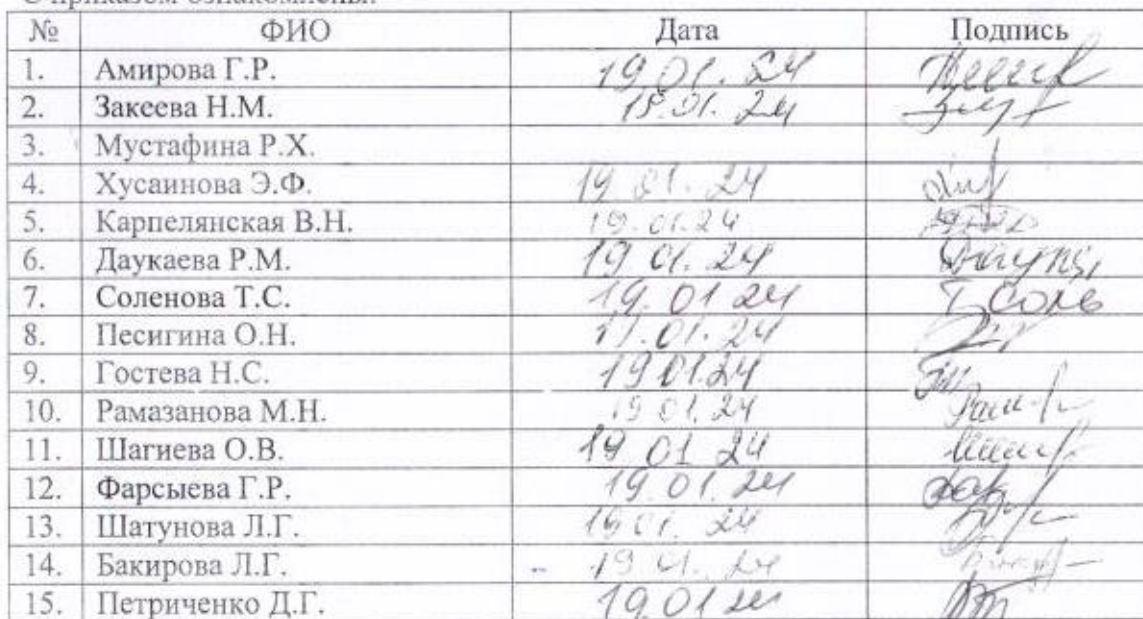 С приказом ознакомлены:
№ ФИО Дата Подпись
1. Амирова Г.Р. 19.01.24
2. Закеева Н.М. 19.01.24
3. Мустафина Р.Х.
4. Хусаинова Э.Ф. 19.01.24
5. Карпелянская В.Н. 19.01.24
6. Даукаева Р.М. 19.01.24
7. Соленова Т.С. 19.01.24 ТСоль
8. Песигина О.Н. 19.01.24
9. Гостева Н.С. 19.01.24
10. Рамазанова М.Н. 19.01.24
11. Шагиева О.В. 19.01.24
12. Фарсыева Г.Р. 19.01.24
13. Шатунова Л.Г. 19.01.24
14. Бакирова Л.Г. 19.01.24
15. Петриченко Д.Г. 19.01.24